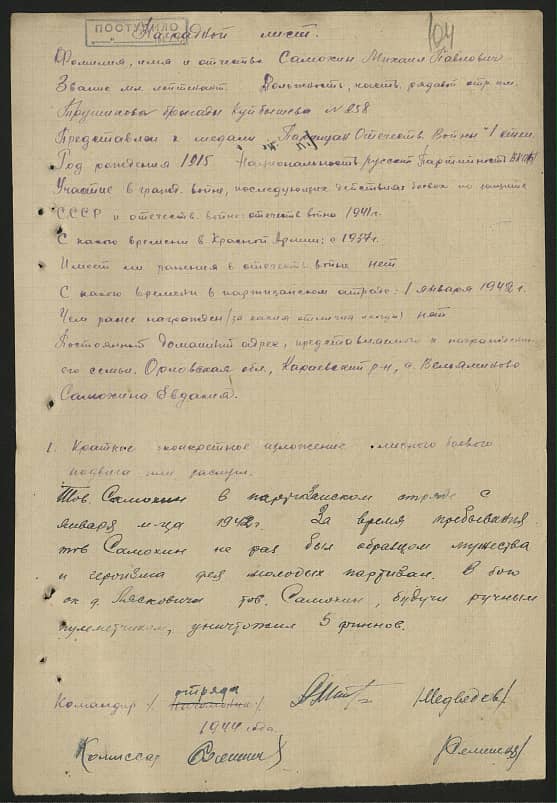 ПОСТУПИЛО
104
Наградной лист.
Фамилия, имя и отчество Самохин Михаил Павлович
Звание мл. лейтенант. Должность, часть. рядовой отр. им.
Трушникова бригады Куйбышева № 258
Представлен к медали "Партизан Отечеств. Войны" 1 степ.
Год рождения 1915 Национальность русский Партийность
Участие в гражд. войне, последующих действиях боевых по защите
СССР и отечеств. войне: отечеств война 1941 г.
С какого времени в Красной Армии: с 1937 г.
Имеет ли ранения в отечеств войне нет
С какого времени в партизанском отряде: 1 января 1942 г.
Чем ранее награжден (за какия отличия) нет
Постоянный домашний адрес, представляемого к награждению
его семьи. Орловская обл., Карачевский р-н, д. Вельяминово
Самохина Евдокия.
1. Краткое конкретное изложение личного боевого
подвига или заслуги.
Тов. Самохин в партизанском отряде с
января м-ца 1942 г. За время пребывания
тов Самохин не раз был образцом мужества
и героизма для молодых партизан. В бою
ок д. Лясковичи тов. Самохин, будучи ручным
пулеметчиком, уничтожил 5 финнов.
отряда
Командир /Медведев/
1944 года.
Комиссар